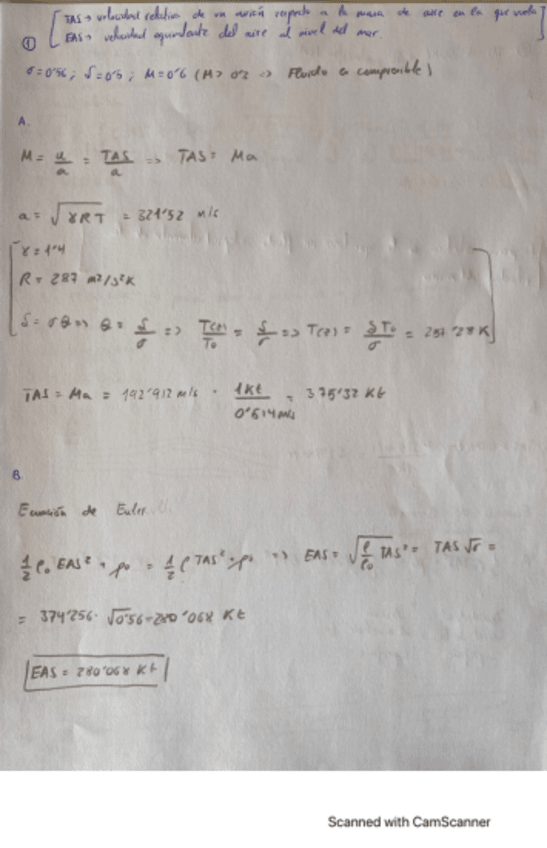 ① TAS → velocidad relativa de un avión respecto a la masa de aire en la que vuela
EAS → velocidad equivalente del aire al nivel del mar.
σ = 0'56 ; δ = 0'5 ; M = 0'6 ( M > 0'2 => Fluido es compresible )
A.
M = u/a = TAS/a => TAS = Ma
a = √γRT = 321'52 m/s
γ = 1'4
R = 287 m²/s²K
δ = σθ => θ = δ/σ => T(z)/T₀ = δ/σ => T(z) = δT₀/σ = 257'28 K
TAS = Ma = 192'912 m/s · 1Kt/0'514m/s = 375'32 Kt
B.
Ecuación de Euler
½ ρ₀ EAS² + p₀ = ½ ρ TAS² + p₀ => EAS = √ρ/ρ₀ TAS² = TAS √σ =
= 374'256 · √0'56 = 280'068 Kt
EAS = 280'068 Kt
Scanned with CamScanner